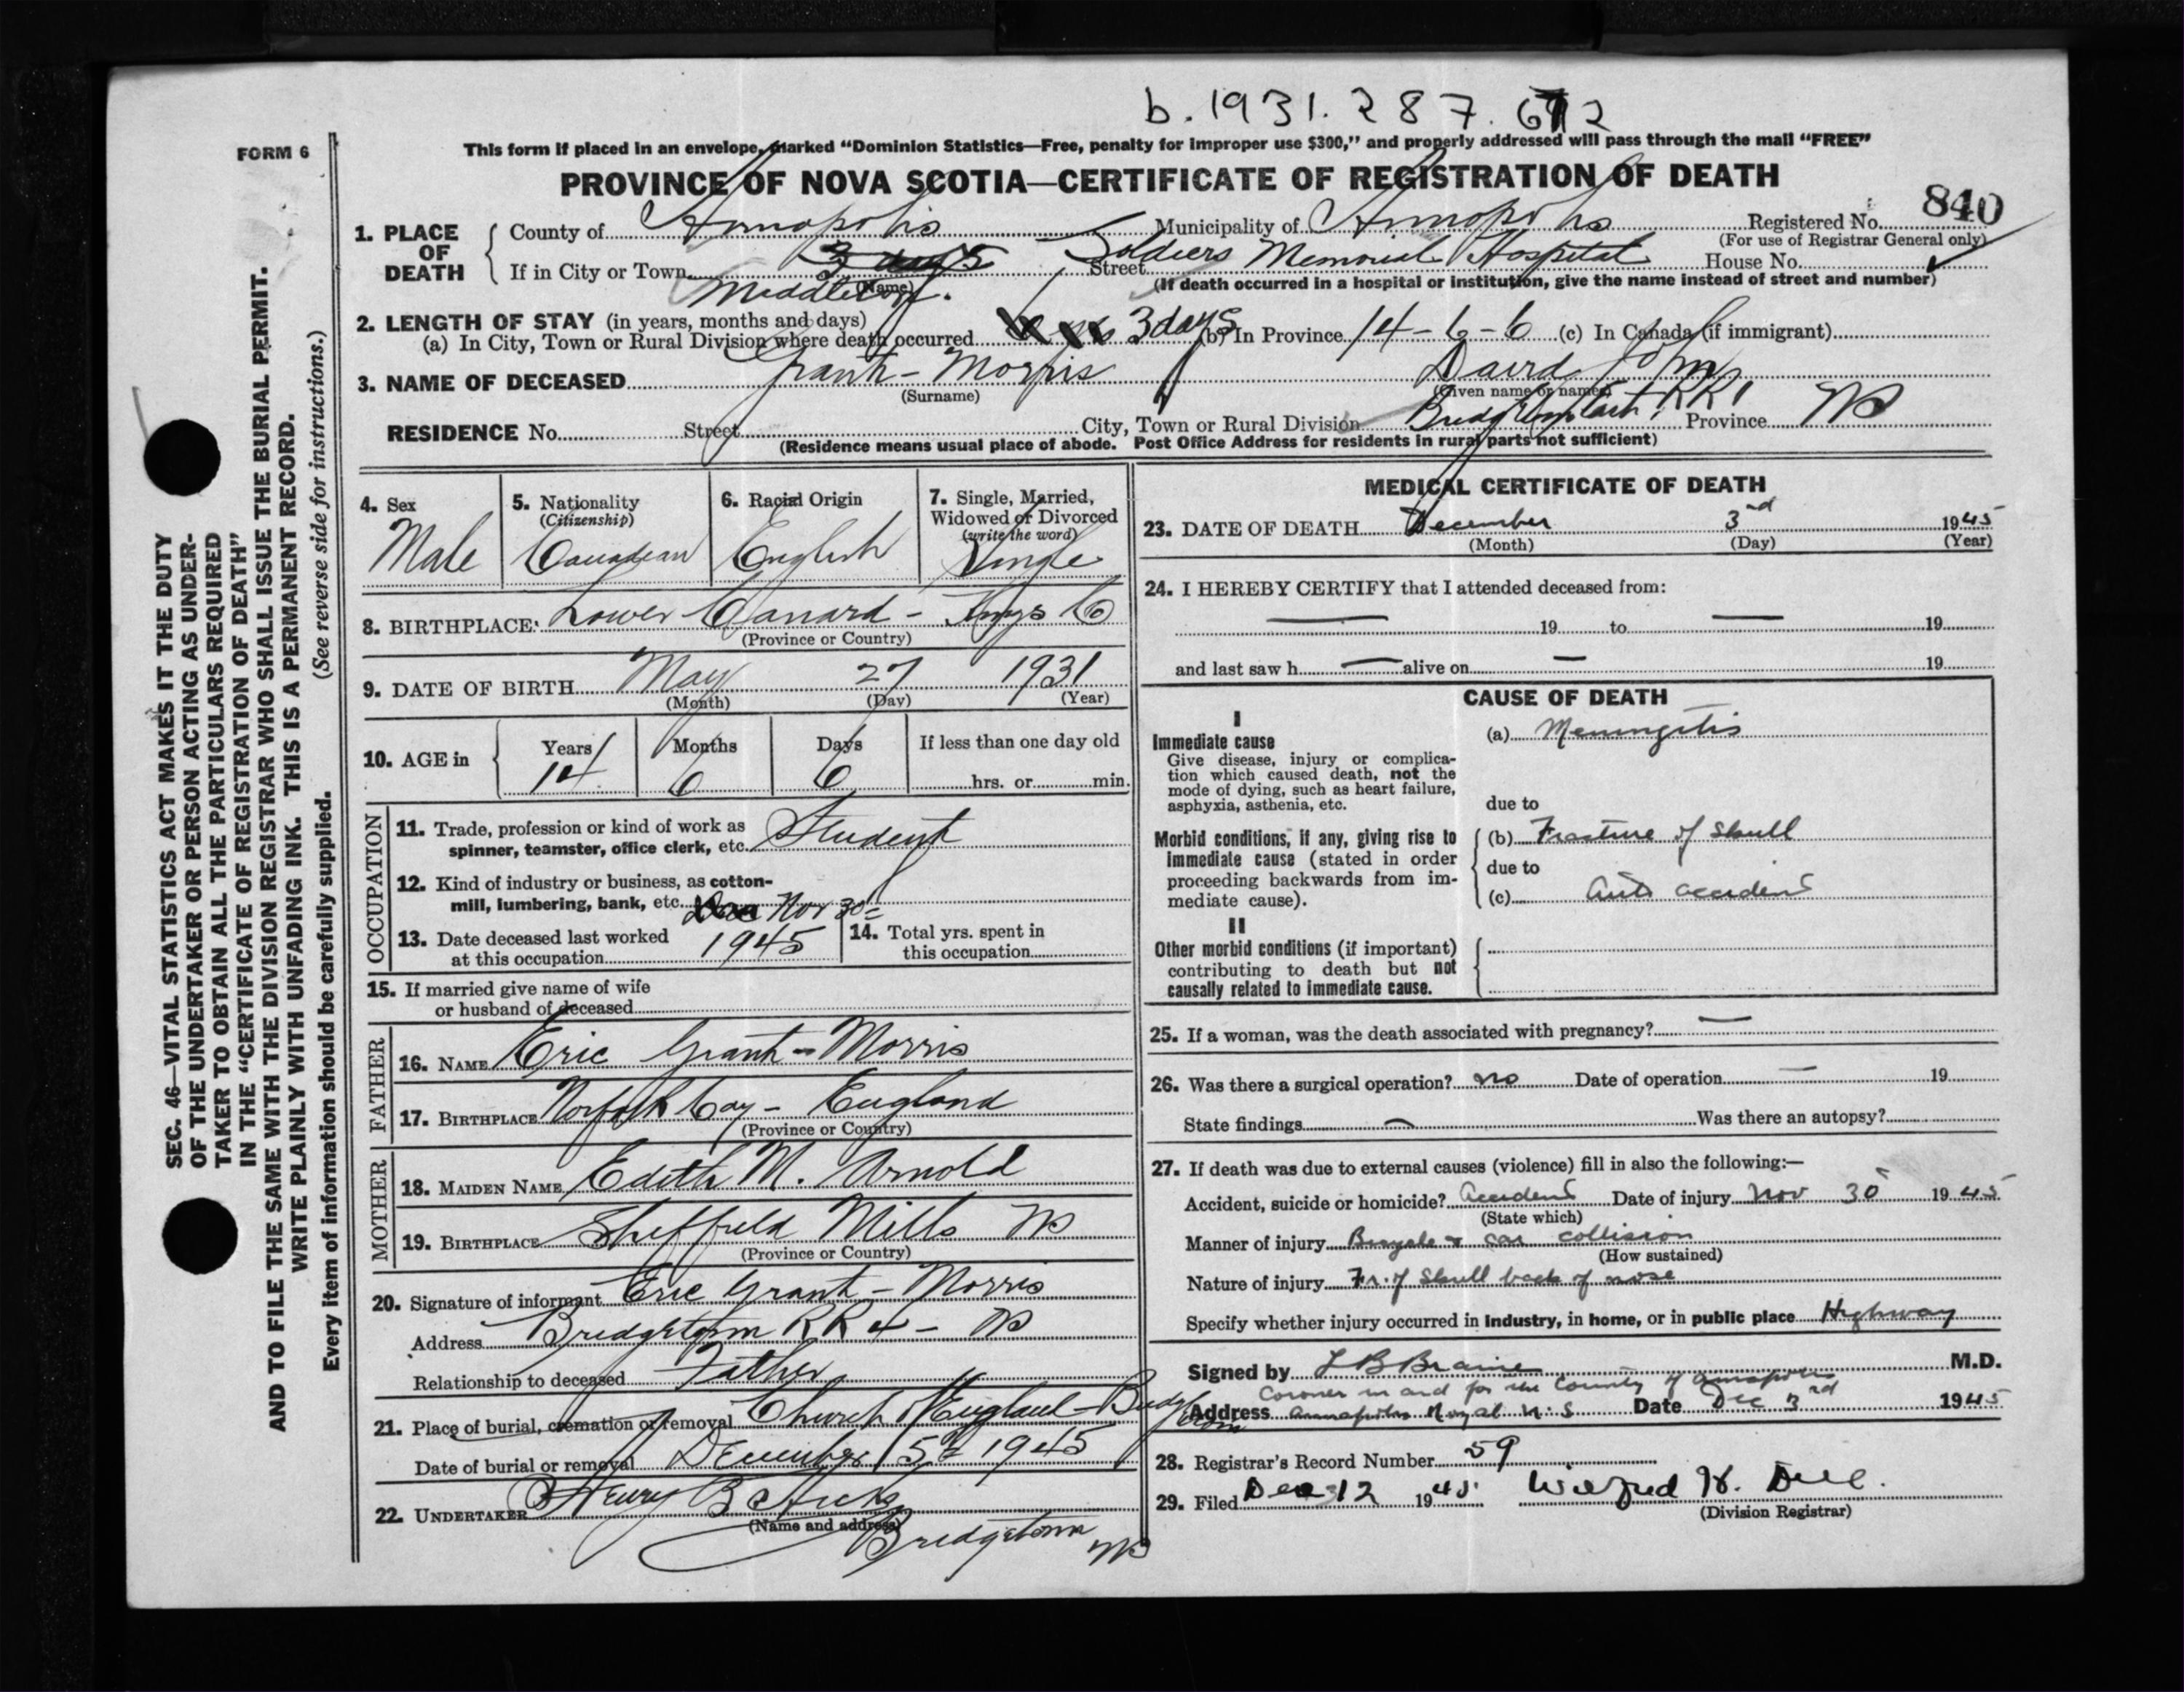 b. 1931. 287. 672
FORM 6
This form if placed in an envelope, marked "Dominion Statistics—Free, penalty for improper use $300," and properly addressed will pass through the mail "FREE"
PROVINCE OF NOVA SCOTIA—CERTIFICATE OF REGISTRATION OF DEATH
840
1. PLACE OF DEATH
County of Annapolis Municipality of Annapolis Registered No.
(For use of Registrar General only)
If in City or Town 3 days Street Soldiers Memorial Hospital House No.
Middleton. (Name) (If death occurred in a hospital or institution, give the name instead of street and number)
2. LENGTH OF STAY (in years, months and days)
(a) In City, Town or Rural Division where death occurred 3 days (b) In Province 14-6-6 (c) In Canada (if immigrant)
3. NAME OF DECEASED Grant-Morris David John
(Surname) (Given name or names)
RESIDENCE No. Street City, Town or Rural Division Bridgetown RR1 Province NS
(Residence means usual place of abode. Post Office Address for residents in rural parts not sufficient)
SEC. 46—VITAL STATISTICS ACT MAKES IT THE DUTY
OF THE UNDERTAKER OR PERSON ACTING AS UNDER-
TAKER TO OBTAIN ALL THE PARTICULARS REQUIRED
IN THE "CERTIFICATE OF REGISTRATION OF DEATH"
AND TO FILE THE SAME WITH THE DIVISION REGISTRAR WHO SHALL ISSUE THE BURIAL PERMIT.
WRITE PLAINLY WITH UNFADING INK. THIS IS A PERMANENT RECORD.
Every item of information should be carefully supplied. (See reverse side for instructions.)
4. Sex
Male
5. Nationality
(Citizenship)
Canadian
6. Racial Origin
English
7. Single, Married,
Widowed or Divorced
(write the word)
Single
8. BIRTHPLACE: Lower Canard - Kings Co
(Province or Country)
9. DATE OF BIRTH May 27 1931
(Month) (Day) (Year)
10. AGE in
Years Months Days If less than one day old
14 6 6 hrs. or min.
OCCUPATION
11. Trade, profession or kind of work as
spinner, teamster, office clerk, etc. Student
12. Kind of industry or business, as cotton-
mill, lumbering, bank, etc.
13. Date deceased last worked
at this occupation Nov 30 1945
14. Total yrs. spent in
this occupation
15. If married give name of wife
or husband of deceased
FATHER
16. NAME Eric Grant-Morris
17. BIRTHPLACE Norfolk Coy - England
(Province or Country)
MOTHER
18. MAIDEN NAME Edith M. Arnold
19. BIRTHPLACE Sheffield Mills NS
(Province or Country)
20. Signature of informant Eric Grant-Morris
Address Bridgetown RR 4 - NS
Relationship to deceased Father
21. Place of burial, cremation or removal Church of England - Bridgetown
Date of burial or removal December 5th 1945
22. UNDERTAKER Henry B Hicks
(Name and address)
Bridgetown NS
MEDICAL CERTIFICATE OF DEATH
23. DATE OF DEATH December 3rd 1945
(Month) (Day) (Year)
24. I HEREBY CERTIFY that I attended deceased from:
— 19 to — 19
and last saw h — alive on — 19
CAUSE OF DEATH
I
Immediate cause
Give disease, injury or complica-
tion which caused death, not the
mode of dying, such as heart failure,
asphyxia, asthenia, etc.
(a) Meningitis
due to
Morbid conditions, if any, giving rise to
immediate cause (stated in order
proceeding backwards from im-
mediate cause).
(b) Fracture of Skull
due to
(c) Auto accident
II
Other morbid conditions (if important)
contributing to death but not
causally related to immediate cause.
25. If a woman, was the death associated with pregnancy? —
26. Was there a surgical operation? no Date of operation — 19
State findings — Was there an autopsy?
27. If death was due to external causes (violence) fill in also the following:—
Accident, suicide or homicide? Accident Date of injury Nov 30 1945
(State which)
Manner of injury Bicycle & car collision
(How sustained)
Nature of injury Fr. of Skull back of nose
Specify whether injury occurred in industry, in home, or in public place Highway
Signed by L B Braine M.D.
Coroner in and for the County of Annapolis
Address Annapolis Royal N.S Date Dec 3rd 1945
28. Registrar's Record Number 59
29. Filed Dec 12 1945 Wilfred H.
(Division Registrar)